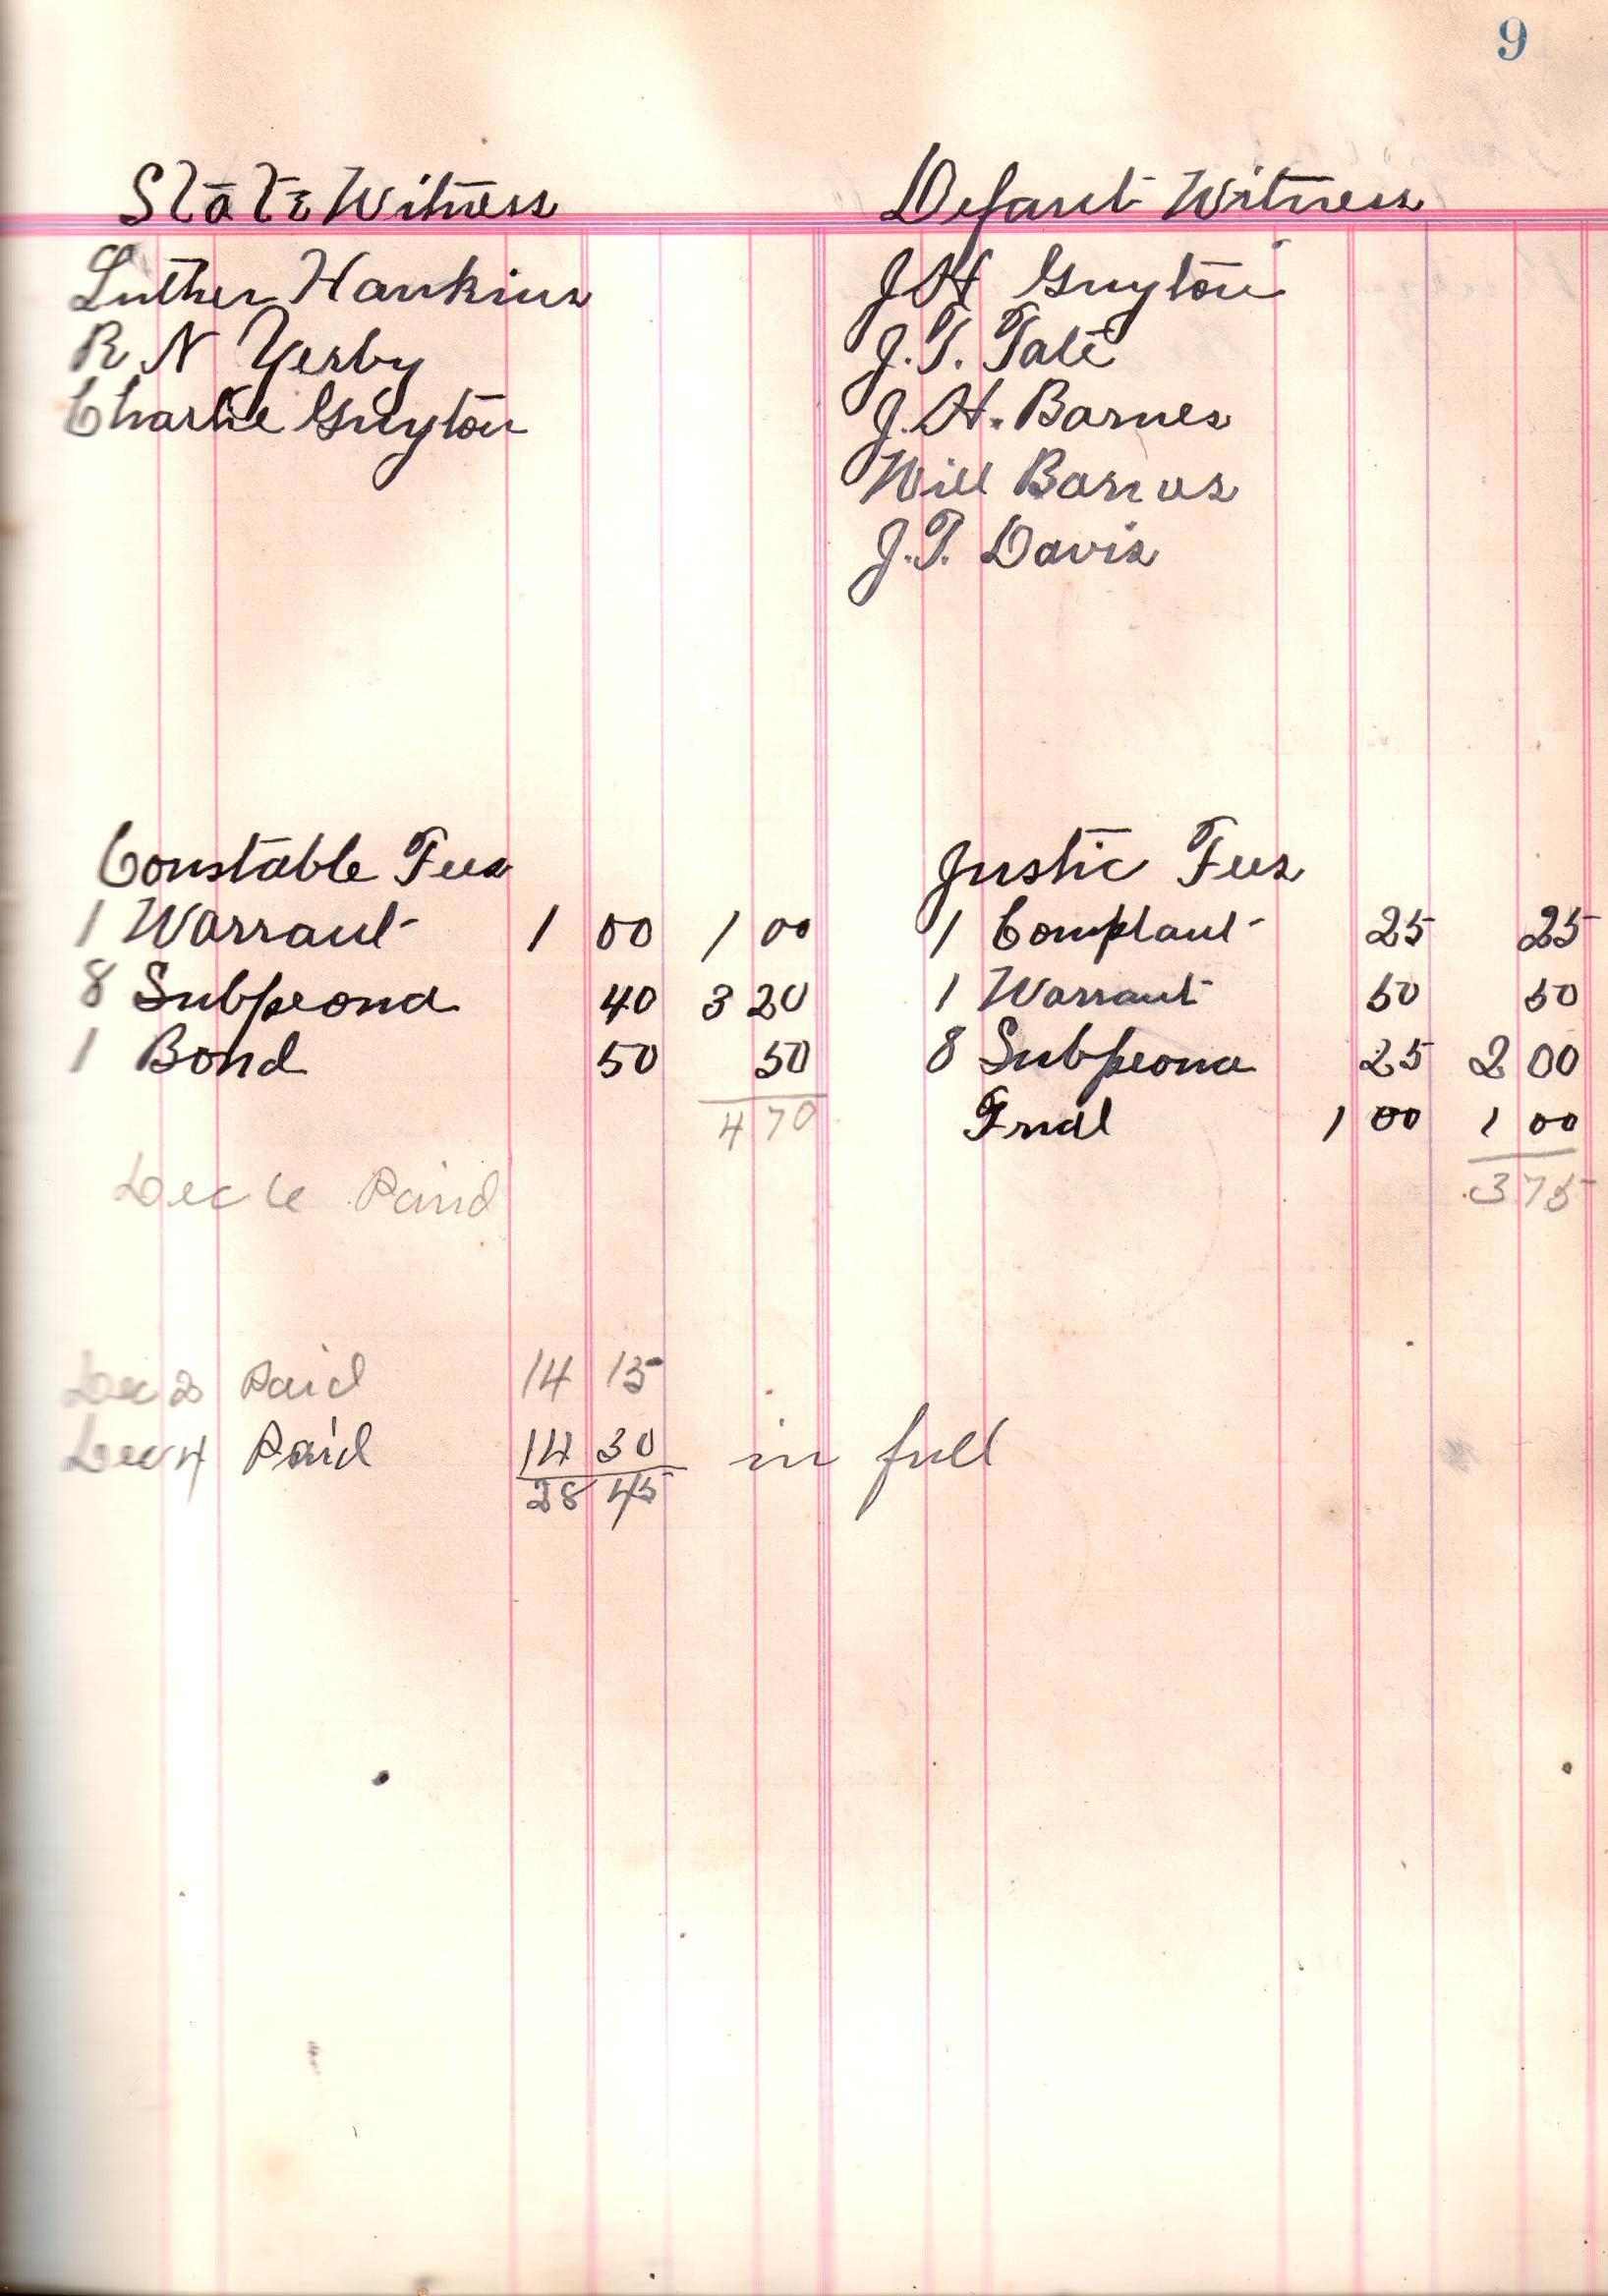 9
State Witness
Luther Hankins
R N Yerby
Charlie Guyton
Defant Witness
J H Guyton
J. T. Tate
J. H. Barnes
Will Barnes
J. T. Davis
Constable Fees
1 Warrant 1 00 1 00
8 Subpeona 40 3 20
1 Bond 50 50
4 70
Dec 6 Paid
Justic Fees
1 Complant 25 25
1 Warrant 50 50
8 Subpeona 25 2 00
Trial 1 00 1 00
3 75
Dec 2 Paid 14 15
Dec 4 Paid 14 30 in full
28 45